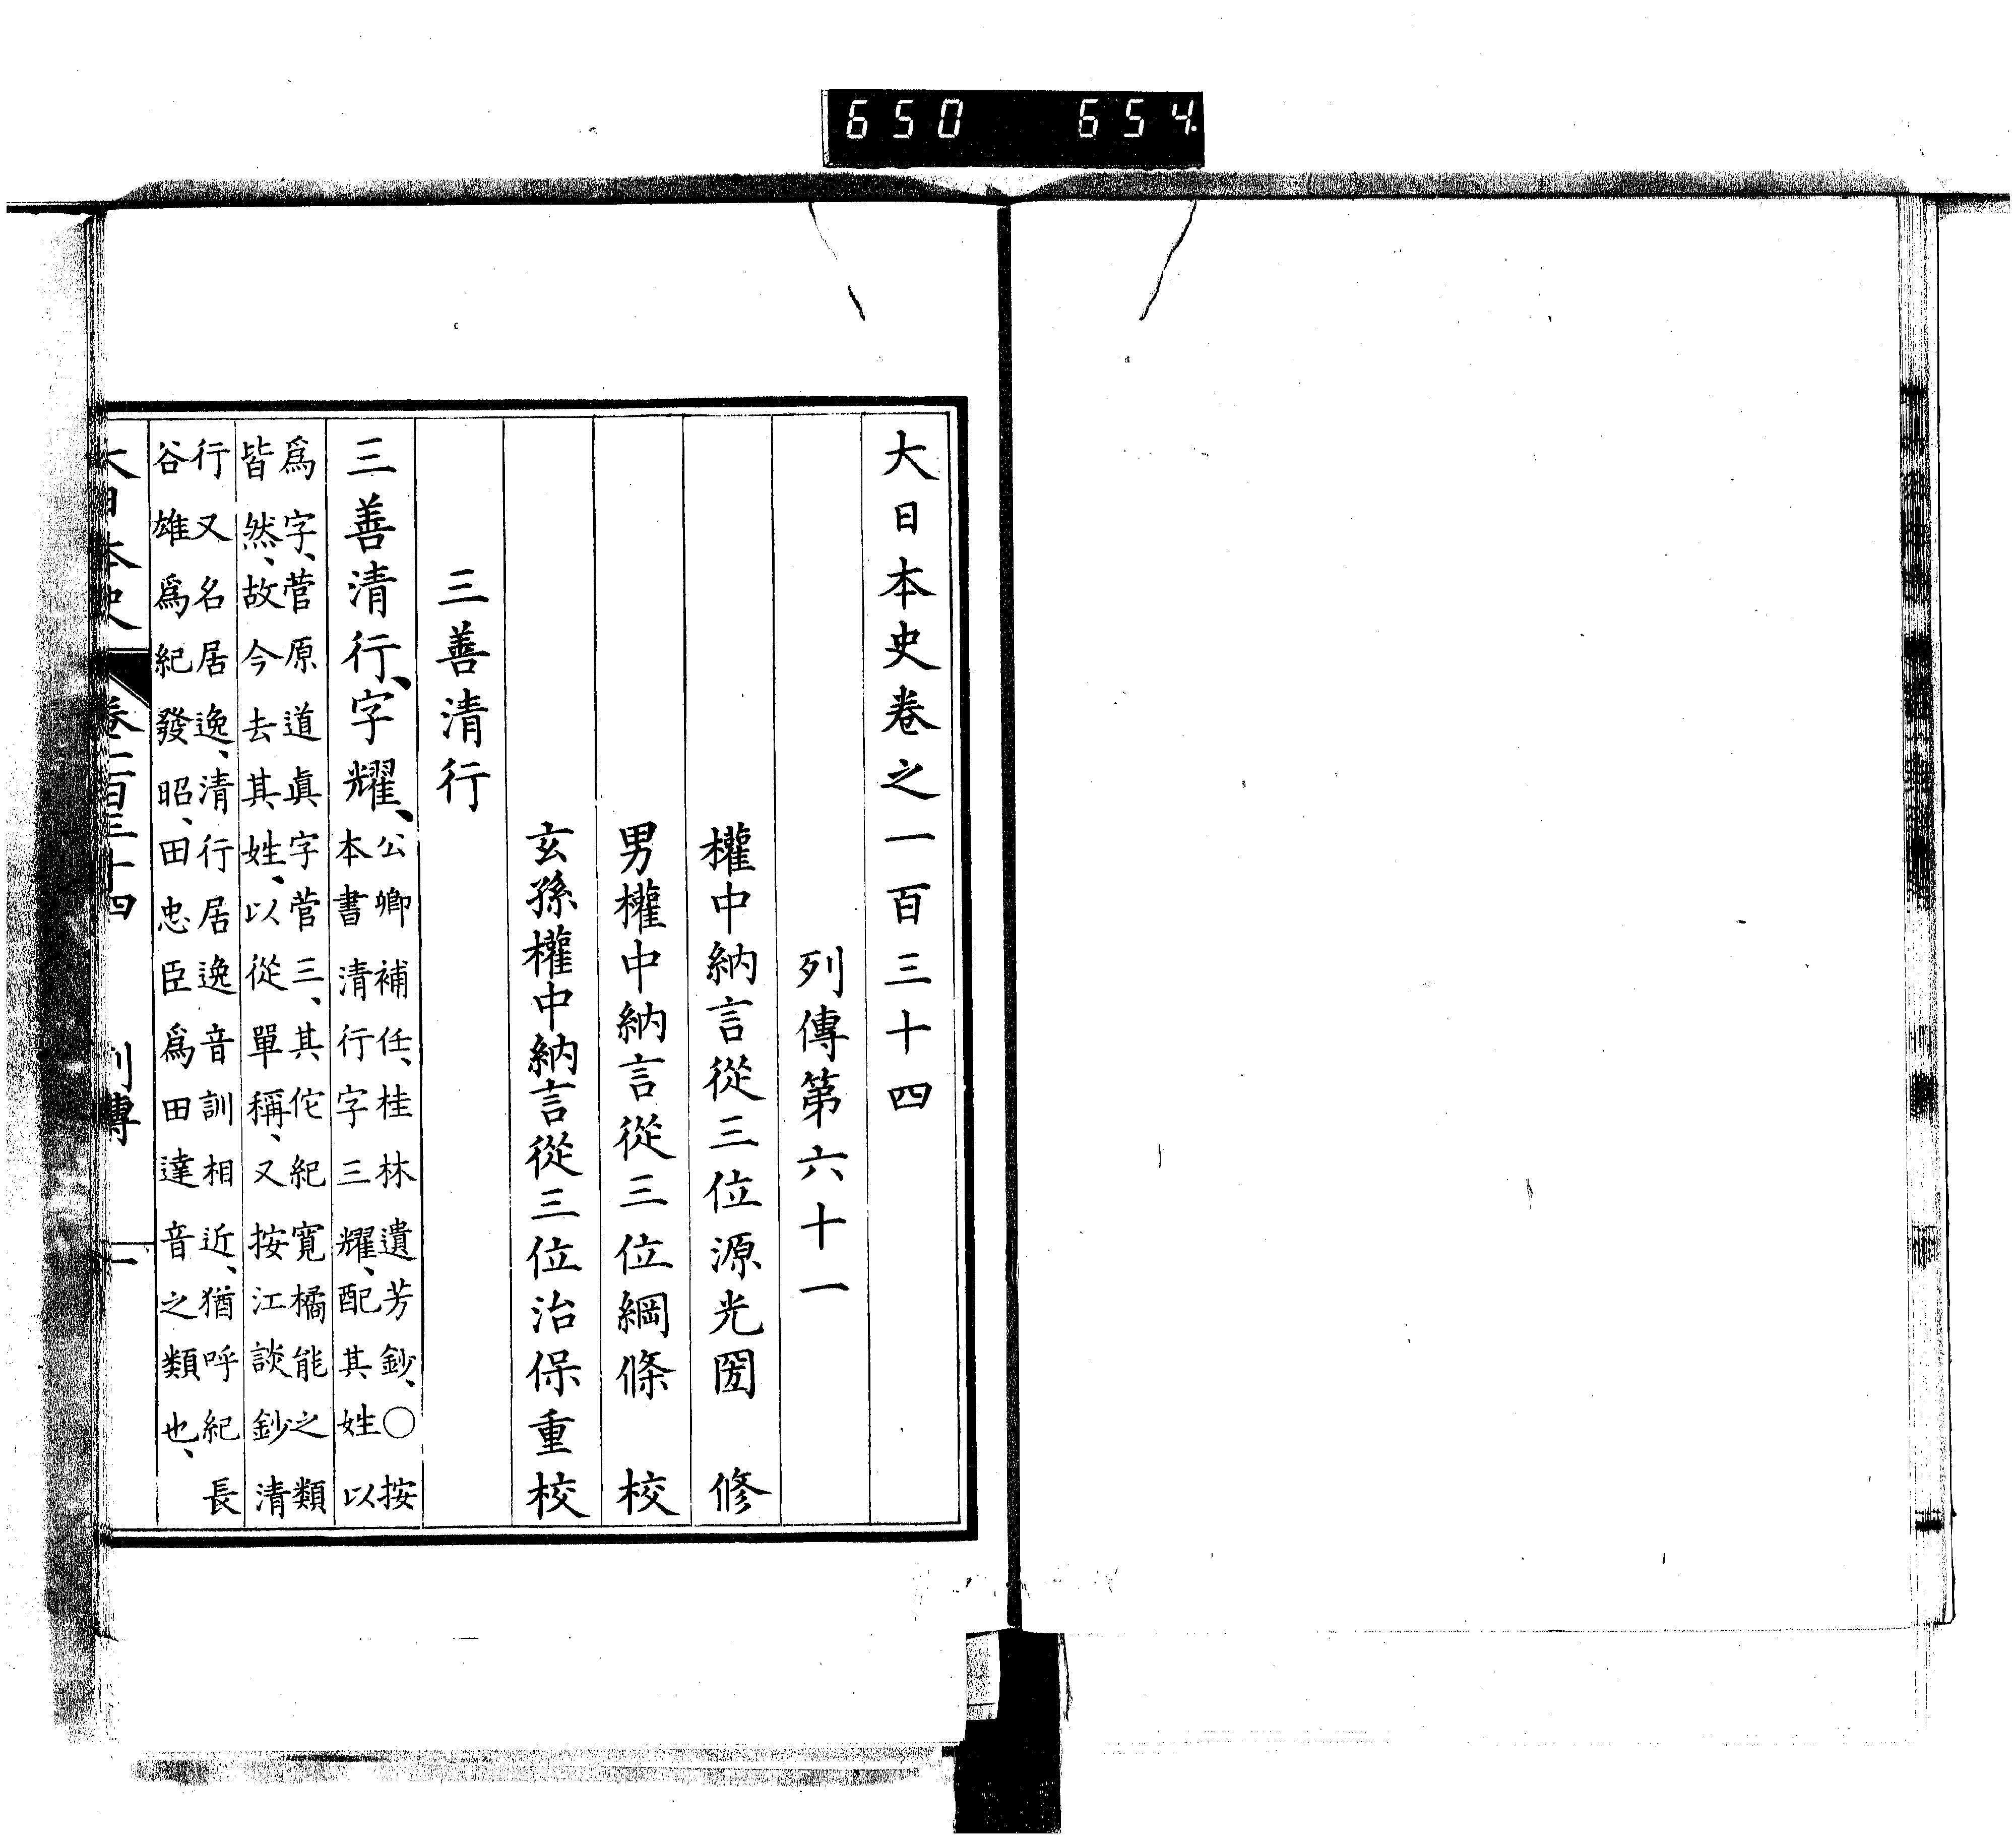 650 654
大日本史卷之一百三十四
列傳第六十一
權中納言從三位源光圀 修
男權中納言從三位綱條 校
玄孫權中納言從三位治保重校
三善清行
三善清行、字耀、
公卿補任、桂林遺芳鈔、○按
本書清行字三耀、配其姓以
爲字、菅原道眞字菅三、其佗紀寬橘能之類
皆然、故今去其姓、以從單稱、又按江談鈔清
行又名居逸、清行居逸音訓相近、猶呼紀長
谷雄爲紀發昭、田忠臣爲田達音之類也、
大日本史 卷一百三十四 列傳 一